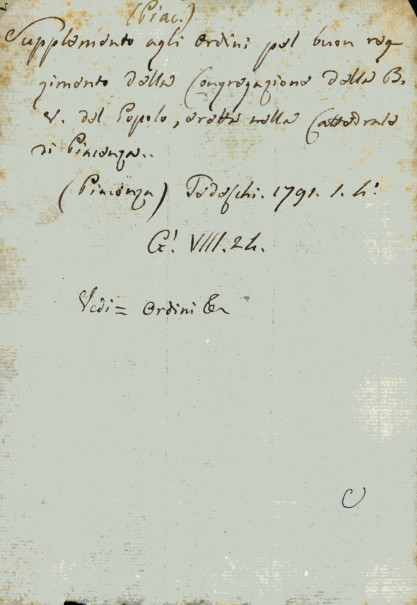 (Piac.)
Supplemento agli ordini pel buon reg
gimento della Congregazione della B.
V. del Popolo, eretta nella Cattedrale
di Piacenza..
(Piacenza) Tedeschi. 1791. 1. h.
G. VIII. 24.
Vedi = Ordini &